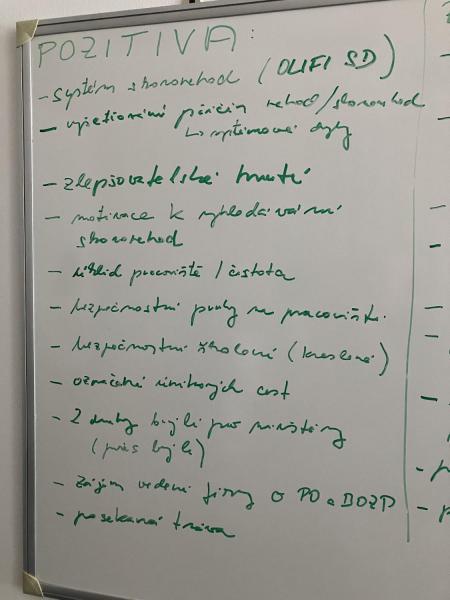 POZITIVA:
- systém skoronehod (OLIFI SD)
- vyšetřování příčin nehod/skoronehod
↳ systémové chyby
- zlepšovatelské hnutí
- motivace k vyhledávání
skoronehod
- úklid pracoviště / čistota
- bezpečnostní prvky na pracovišti.
- bezpečnostní školení (kreslené)
- označení únikových cest
- 2 druhy brýlí pro návštěvy
(přes brýle)
- zájem vedení firmy o PO a BOZP
- posekaná tráva